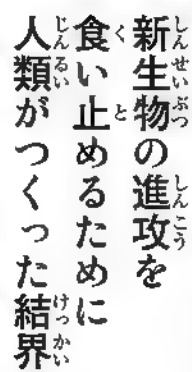 新生物の進攻を
食い止めるために
人類がつくった結界